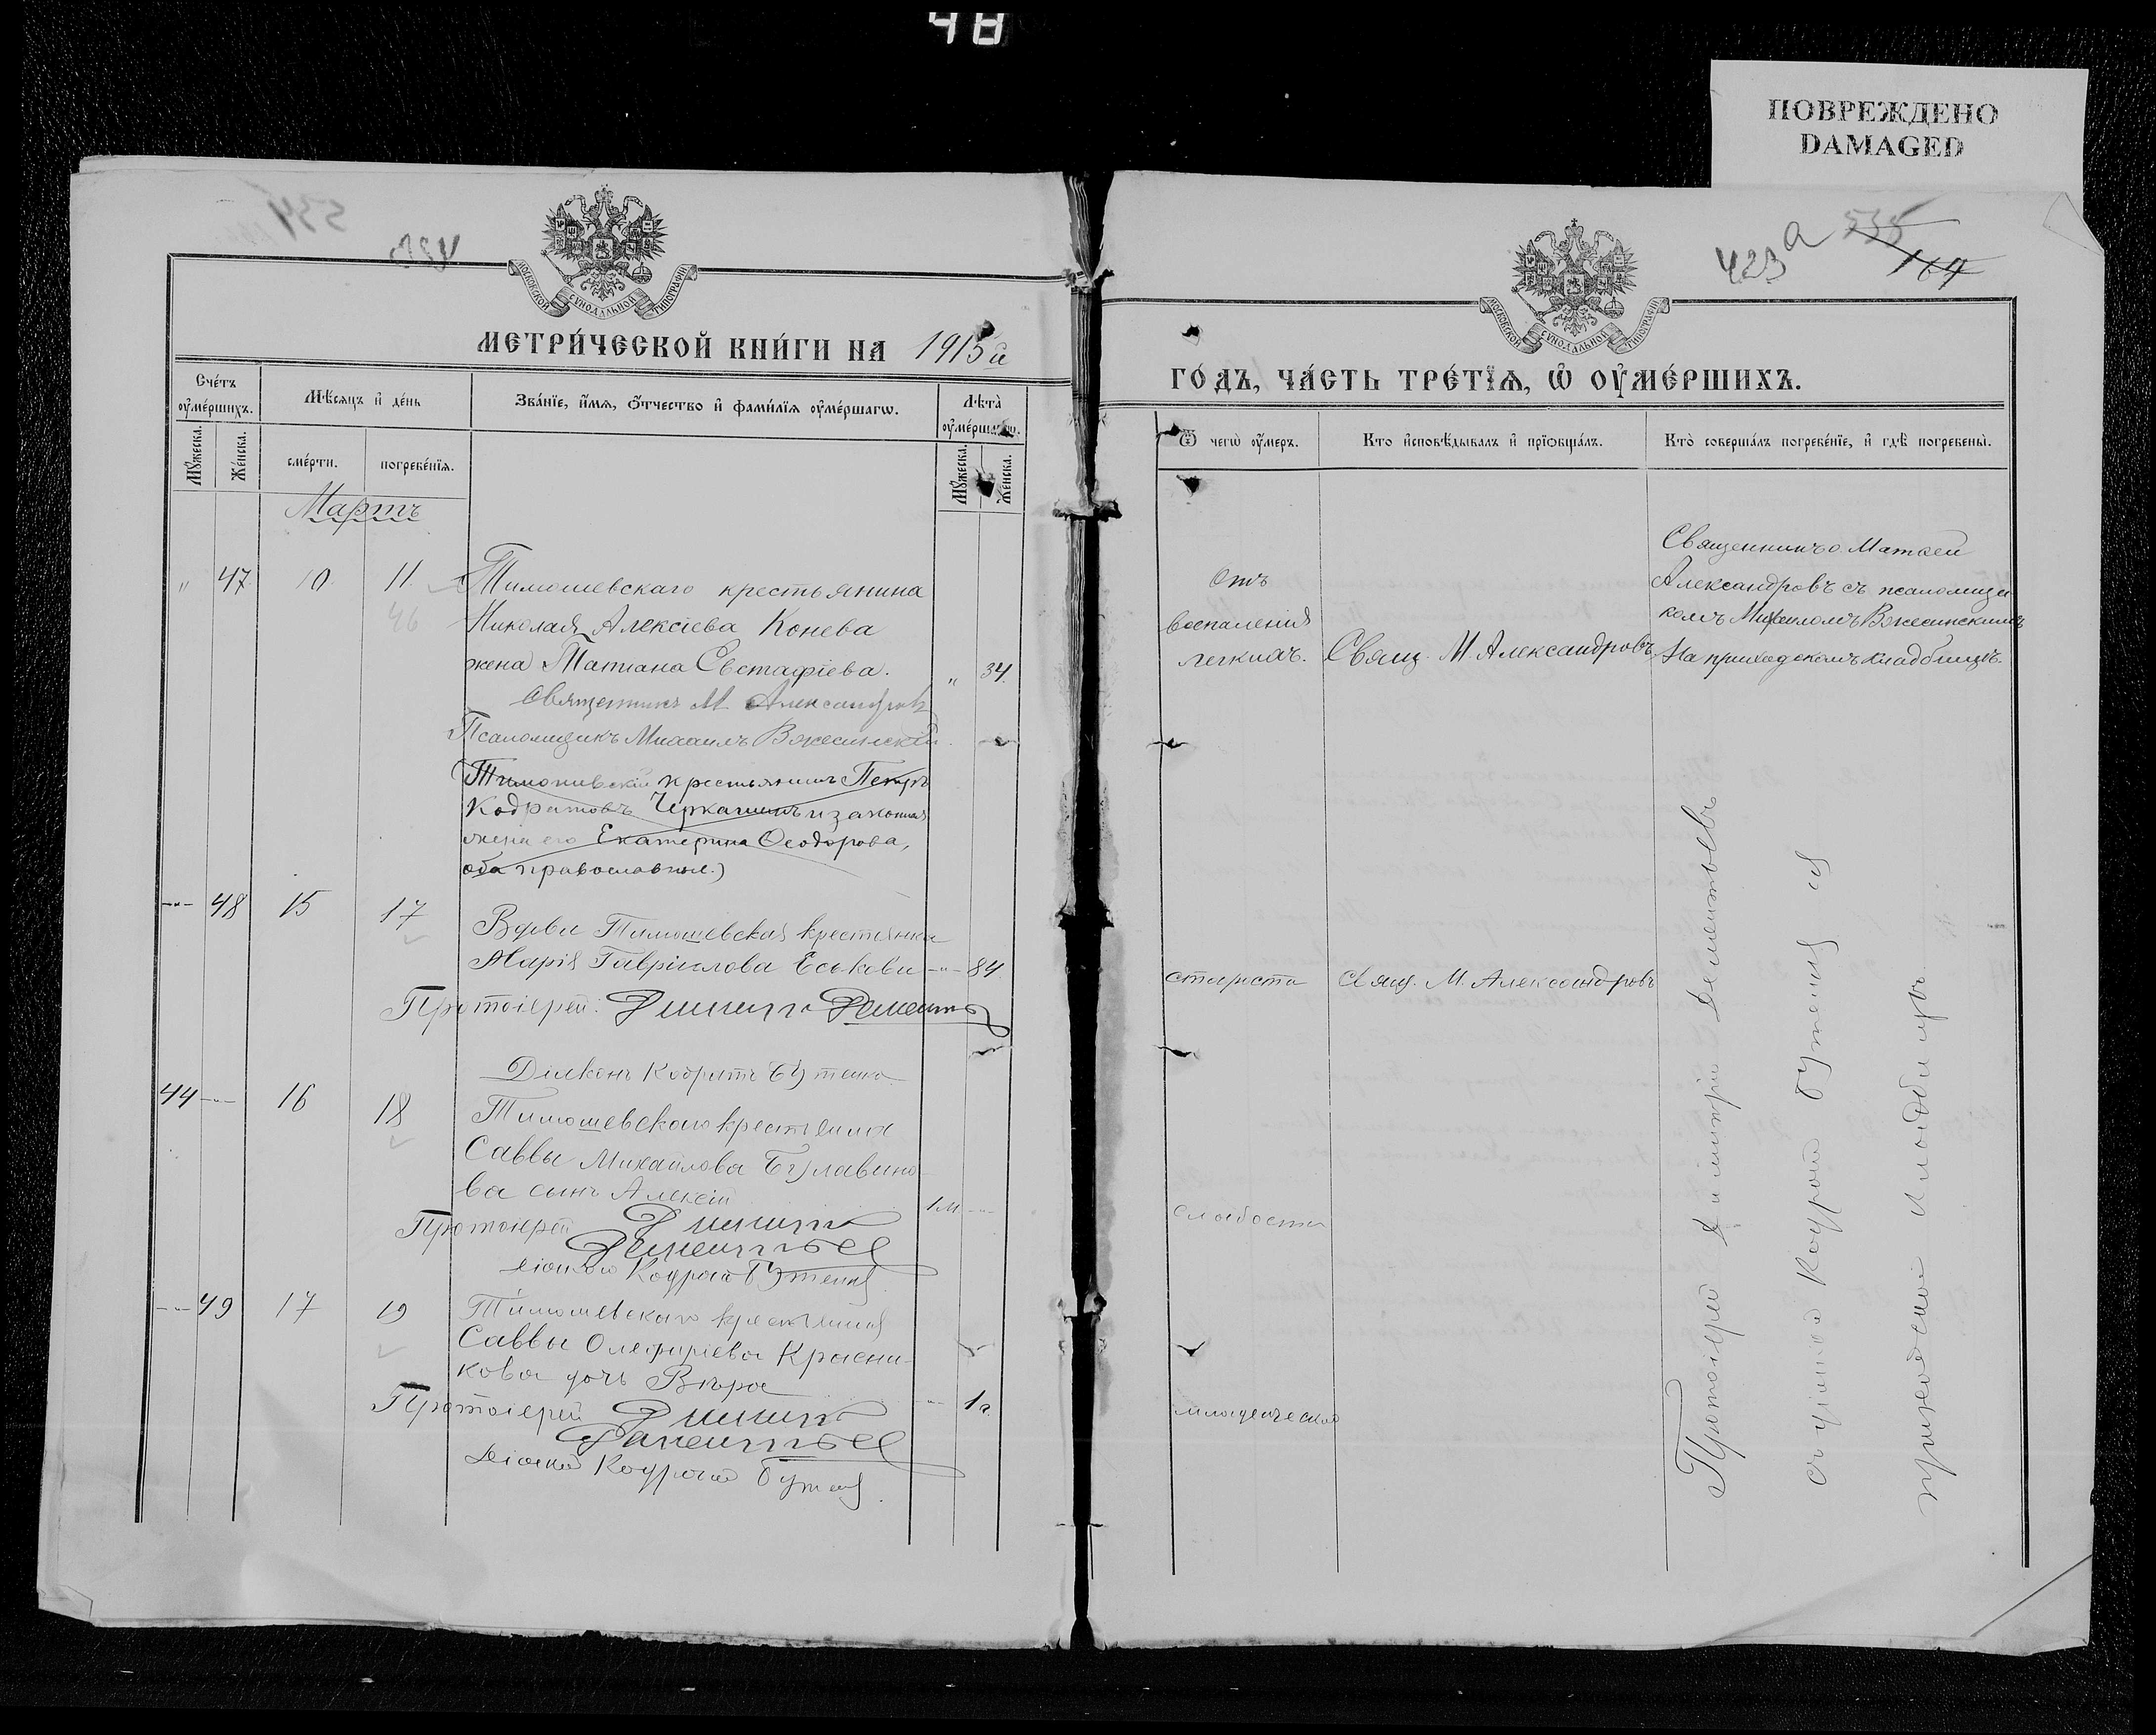 48
ПОВРЕЖДЕНО
DAMAGED
534
МОСКОВСКОЙ СѴНОДАЛЬНОЙ ТИПОГРАФІИ
МЕТРИ́ЧЕСКОЙ КНИ́ГИ НА 1915й
Сче́тъ оу҆ме́ршихъ.
Мѣ́сяцъ и҆ де́нь
Зва́нїе, и҆́мѧ, ѻ҆́тчество и҆ фами́лїѧ оу҆ме́ршагѡ.
Лѣ́та оу҆ме́ршагѡ.
Мꙋ́жеска.
Же́нска.
сме́рти.
погребе́нїѧ.
Мꙋ́жеска.
Же́нска.
Мартъ
" 47. 10 11 Тимошевскаго крестьянина
46 Николая Алексіева Конева
жена Татіана Евстафіева. " 34.
Священникъ М Александровъ
Псаломщикъ Михаилъ Вжесинскій.
(Тимошевскій крестьянинъ Петръ
Кодратовъ Черкашинъ и законная
жена его Екатерина Ѳеодорова,
оба православные.)
-"- 48 15 17 Вдова Тимошевская крестьянка
Марія Гавріилова Еськова -"- 84
Протоіерей: Димитрій Дементьевъ
Діаконъ Кодратъ Бутенко
44 -"- 16 18 Тимошевскаго крестьянина
Саввы Михайлова Булавино-
ва сынъ Алексій 1м -"-
Протоіерей Димитрій
Дементьев
діаконъ Кодратъ Бутенко
-"- 49 17 19 Тимошевскаго крестьянина
Саввы Олефиріева Красни-
кова дочь Вѣра -"- 1г.
Протоіерей Димитрій
Дементьев
Діаконъ Кодратъ Бутенко
423 а 535
164
МОСКОВСКОЙ СѴНОДАЛЬНОЙ ТИПОГРАФІИ
ГО́ДЪ, ЧА́СТЬ ТРЕ́ТЇѦ, Ѡ҆ ОУ҆МЕ́РШИХЪ.
Ѿ чегѡ̀ оу҆́меръ.
Кто̀ и҆сповѣ́дывалъ и҆ прїѡбща́лъ.
Кто̀ соверша́лъ погребе́нїе, и҆ гдѣ̀ погребены̀.
Отъ
воспаленія
легкихъ. Свящ. М. Александровъ.
Священникъ Матѳей
Александровъ съ псаломщи
комъ Михаиломъ Вжесинскимъ
На приходскомъ кладбищѣ.
старости Свящ. М. Александровъ
слабости
младенческой
Протоіерей Димитрій Дементьевъ
съ діакономъ Кодратомъ Бутенко на
приходскомъ кладбищѣ